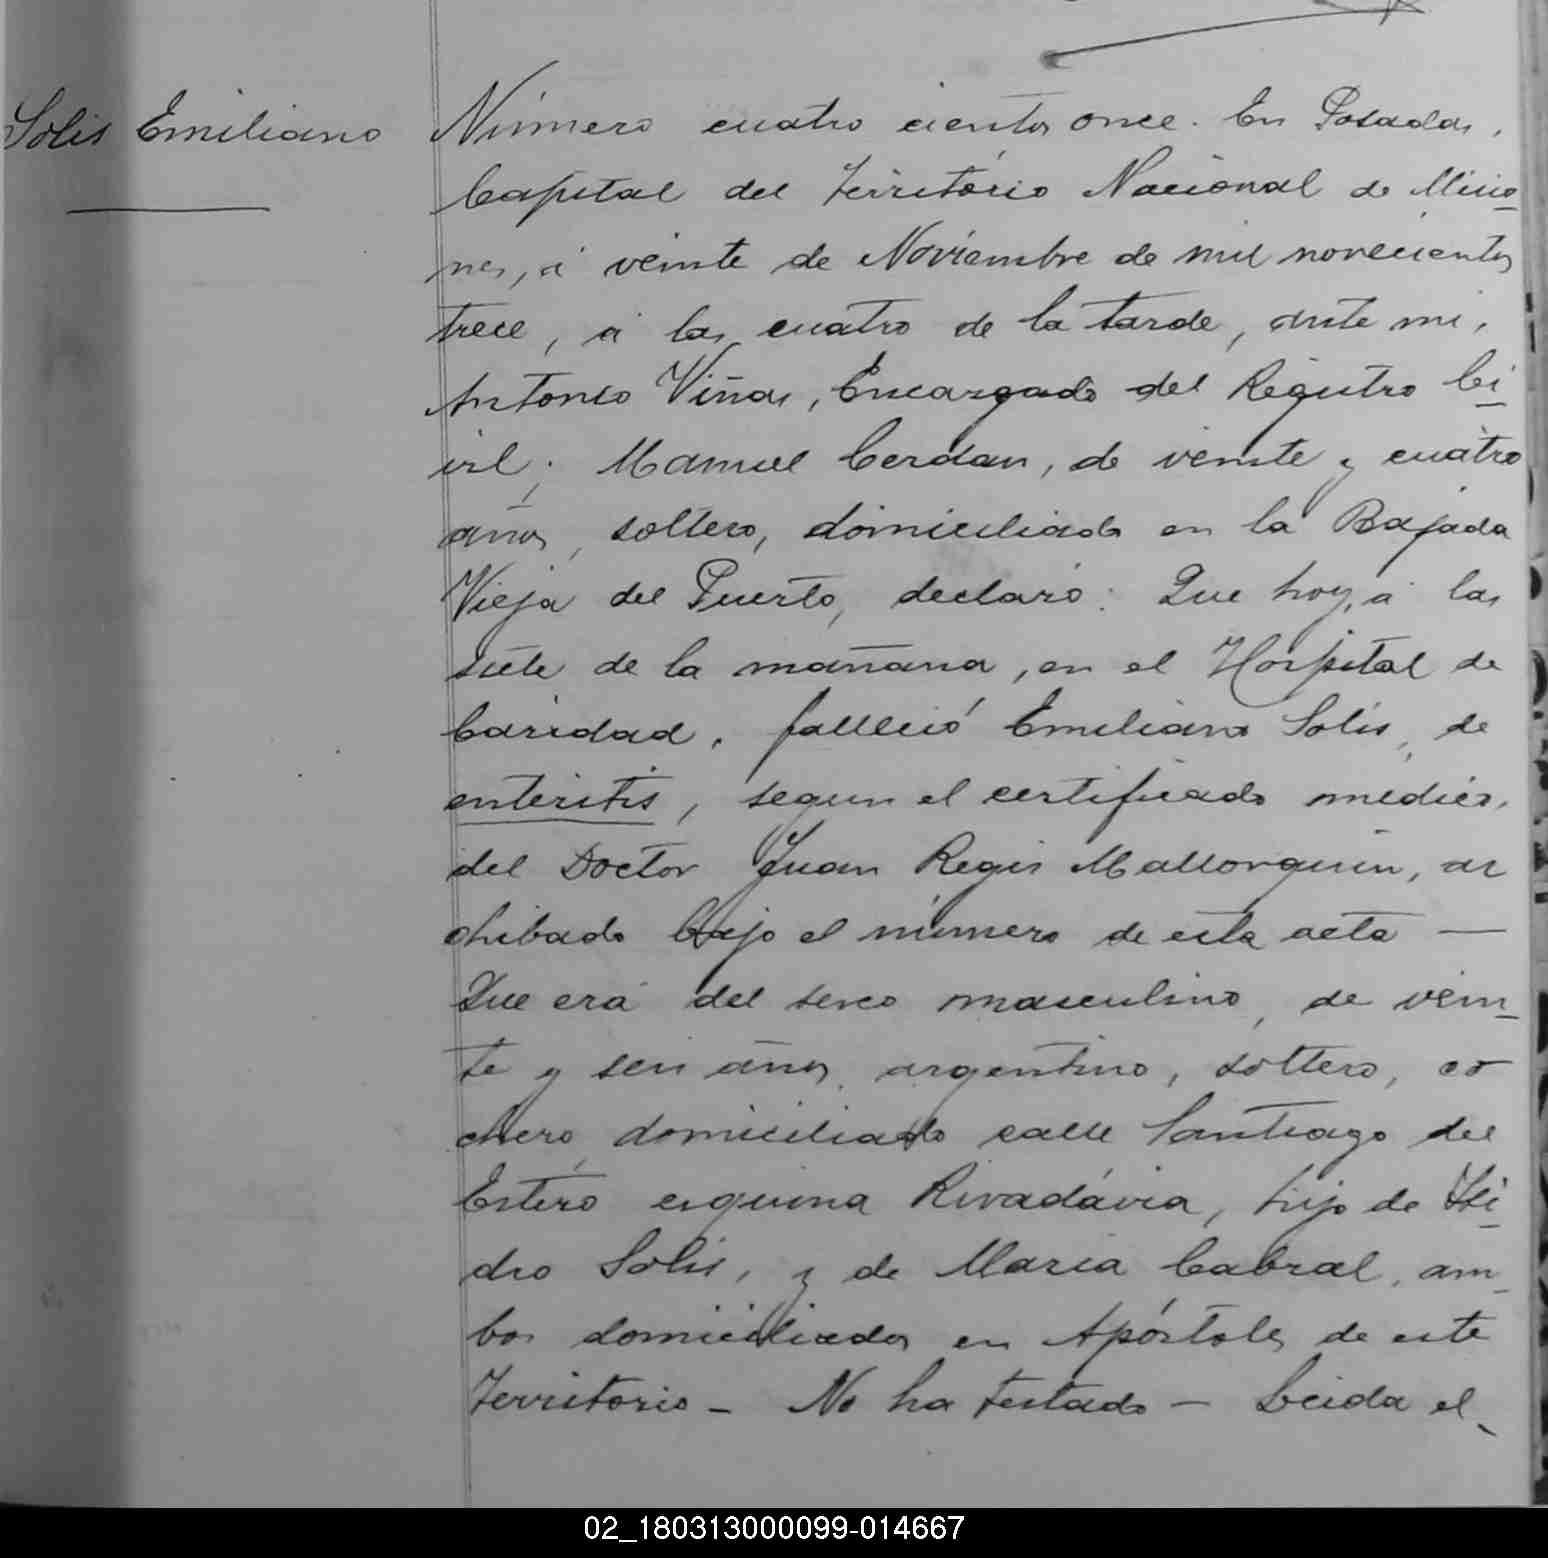 Solis Emiliano
Número cuatro cientos once. En Posadas,
Capital del Territorio Nacional de Misio
nes, á veinte de Noviembre de mil novecientos
trece, á las cuatro de la tarde, ante mi,
Antonio Viñas, Encargado del Registro Ci-
vil; Manuel Cerdan, de veinte y cuatro
años, soltero, domiciliado en la Bajada
Vieja del Puerto, declaró: Que hoy, á las
siete de la mañana, en el Hospital de
Caridad, falleció Emiliano Solis, de
enteritis, segun el certificado médico,
del Doctor Juan Regis Mallorquin, ar
chibado bajo el número de esta acta —
Que era del sexo masculino, de vein-
te y seis años, argentino, soltero, co
chero, domiciliado calle Santiago del
Estero esquina Rivadávia, hijo de Isi-
dro Solis, y de Maria Cabral, am-
bos domiciliados en Apóstoles de este
Territorio - No ha testado - Leida el
02_180313000099-014667